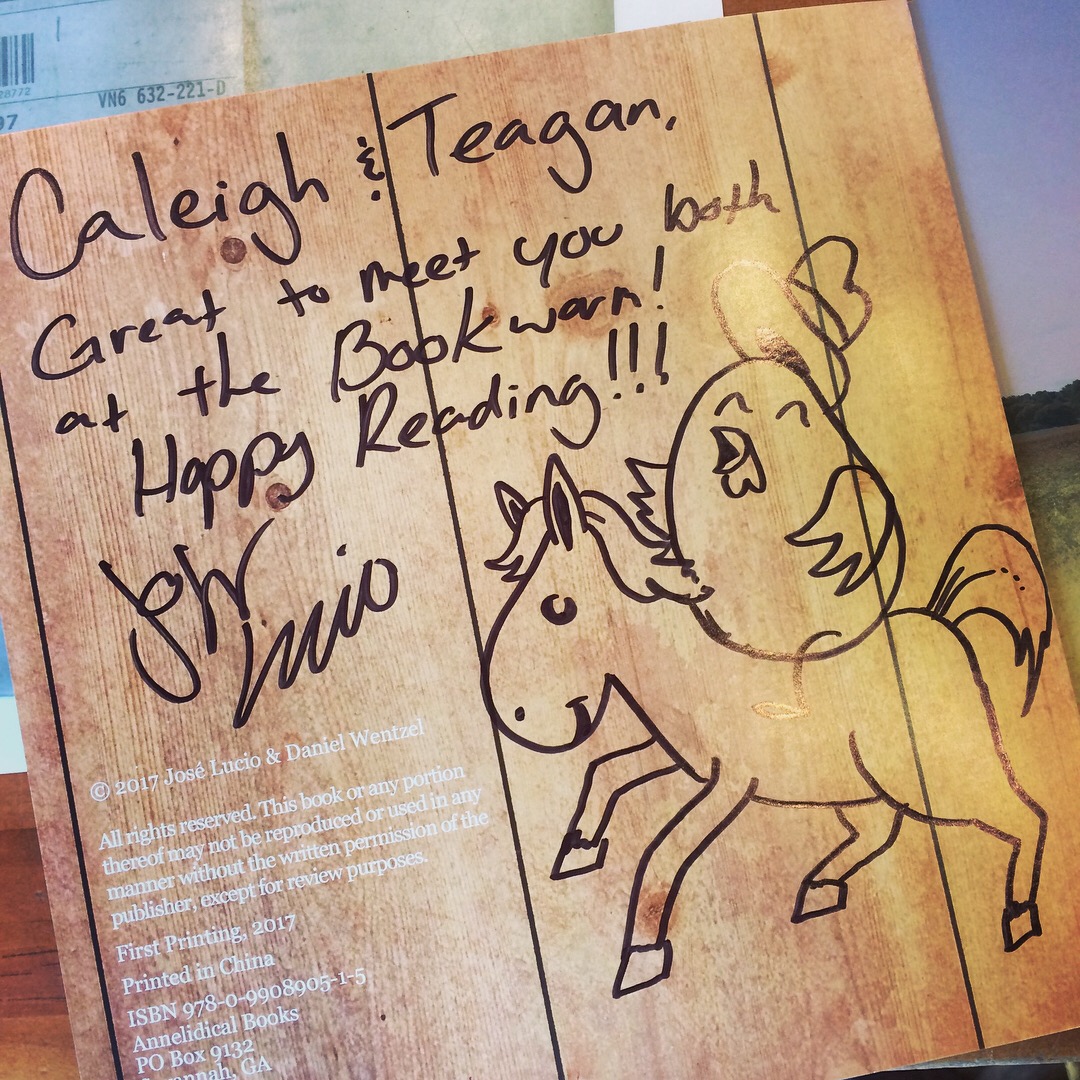 28772
VN6 632-221-D
97
Caleigh & Teagan,
Great to meet you both
at the Bookworm!
Happy Reading!!!
José Lucio
© 2017 José Lucio & Daniel Wentzel
All rights reserved. This book or any portion
thereof may not be reproduced or used in any
manner without the written permission of the
publisher, except for review purposes.
First Printing, 2017
Printed in China
ISBN 978-0-9908905-1-5
Annelidical Books
PO Box 9132
Savannah, GA